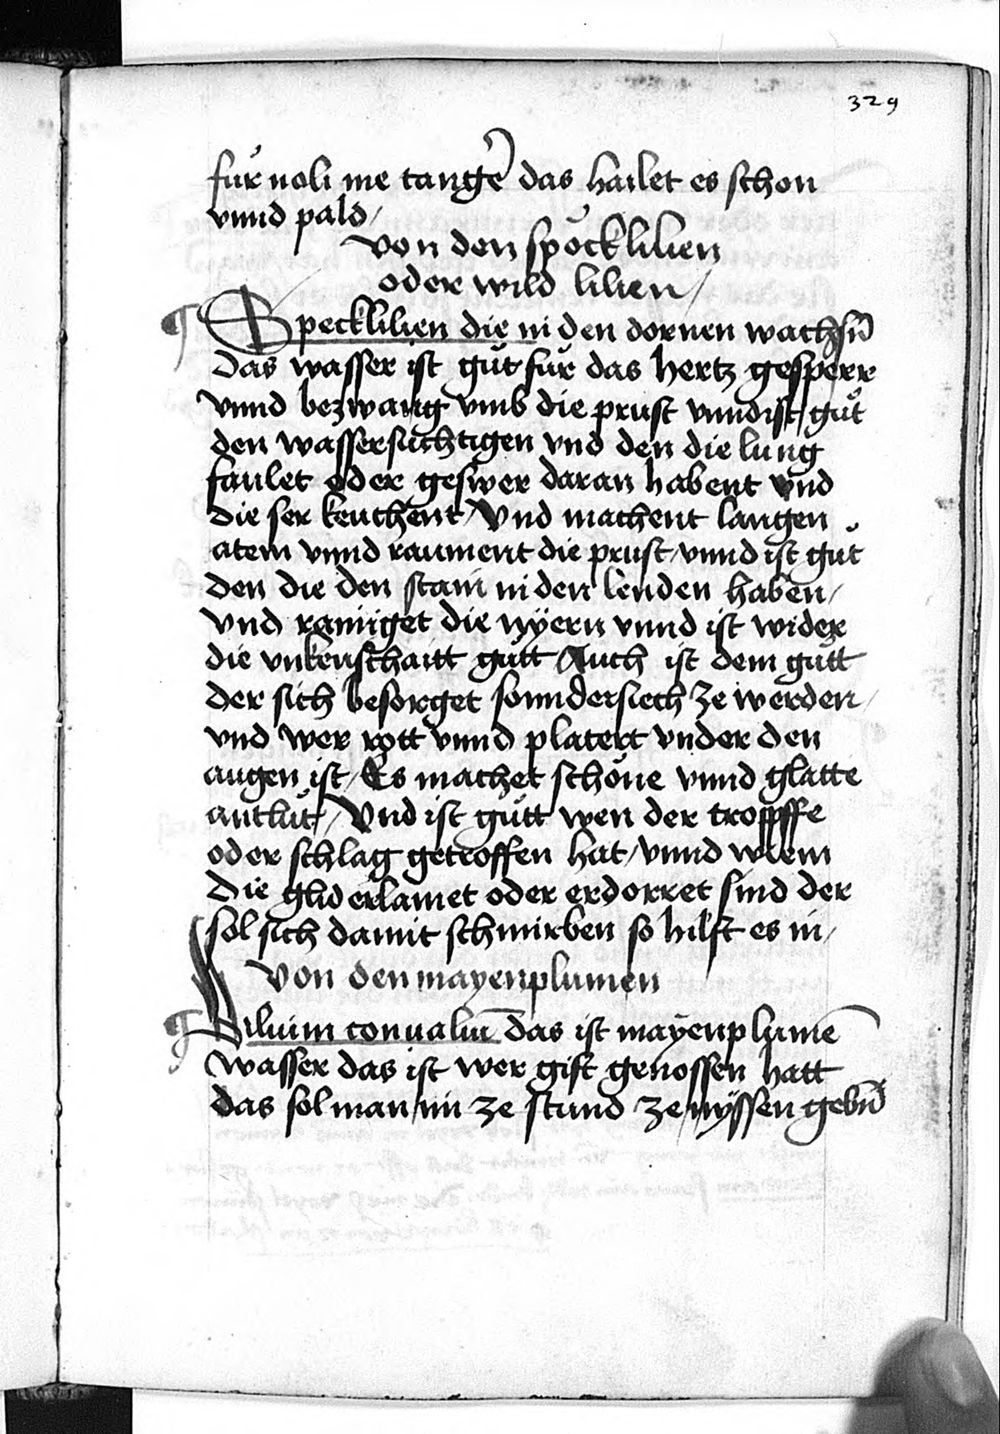 329
für noli me tangē das hailet es schon
vnnd pald /
von den spöcklilien
oder wild lilien /
¶ Specklilien die in den dornen wachsn̄
das wasser ist gůt für das hertz gesperr
vnnd bezwang vmb die prust vnnd ist gůt
den wassersüchtigen vnd den die lung
faulet oder geswer daran habent vnd
die ser keuchent / Vnd machent langen
atem vnnd raument die prust / vnnd ist gůt
den die den stain in den lenden haben /
vnd rainiget die nÿern vnnd ist wider
die vnkeuschaitt gůtt Auch ist dem gůtt
der sich besorget sonndersiech ze werden /
vnd wer rott vnnd platert vnder den
augen ist / Es machet schöne vnnd glatte
antlüt / Vnd ist gůtt wen der tropffe
oder schlag getroffen hat / vnnd wiem
die glid erlamet oder erdorret sind der
sol sich damit schmirben so hilft es in /
Von den mayenplumen
¶ Liluim conualiū das ist maÿenplumē
wasser das ist wer gift genossen hatt
das sol man im ze stund ze nÿssen gebn̄